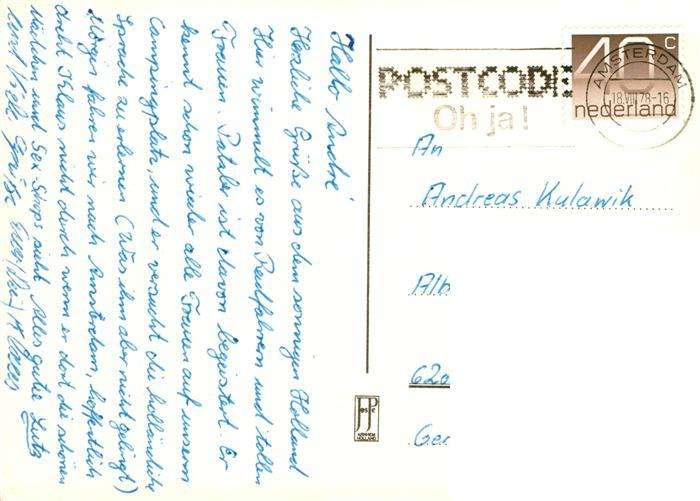 Hallo André
Herzliche Grüße aus dem sonnigen Holland
Hier wimmelt es von Radfahrern und tollen
Frauen. ist davon begeistert. Er
kennt schon wieder alle Frauen auf unserm
Campingplatz, und er versucht die holländische
Sprache zu erlernen (Was ihm aber nicht gelingt)
Morgen fahren wir nach Amsterdam, hoffentlich
dreht Klaus nicht durch wenn er dort die schönen
Mädchen und Sex-Shops sieht. Alles gute Lutz
und Viele Grüße
POSTCODE
Oh ja!
40 c
nederland
AMSTERDAM
18.VIII.78-16
An
Andreas Kulawik
Alb
620
Ger
JosPe
ARNHEM
HOLLAND